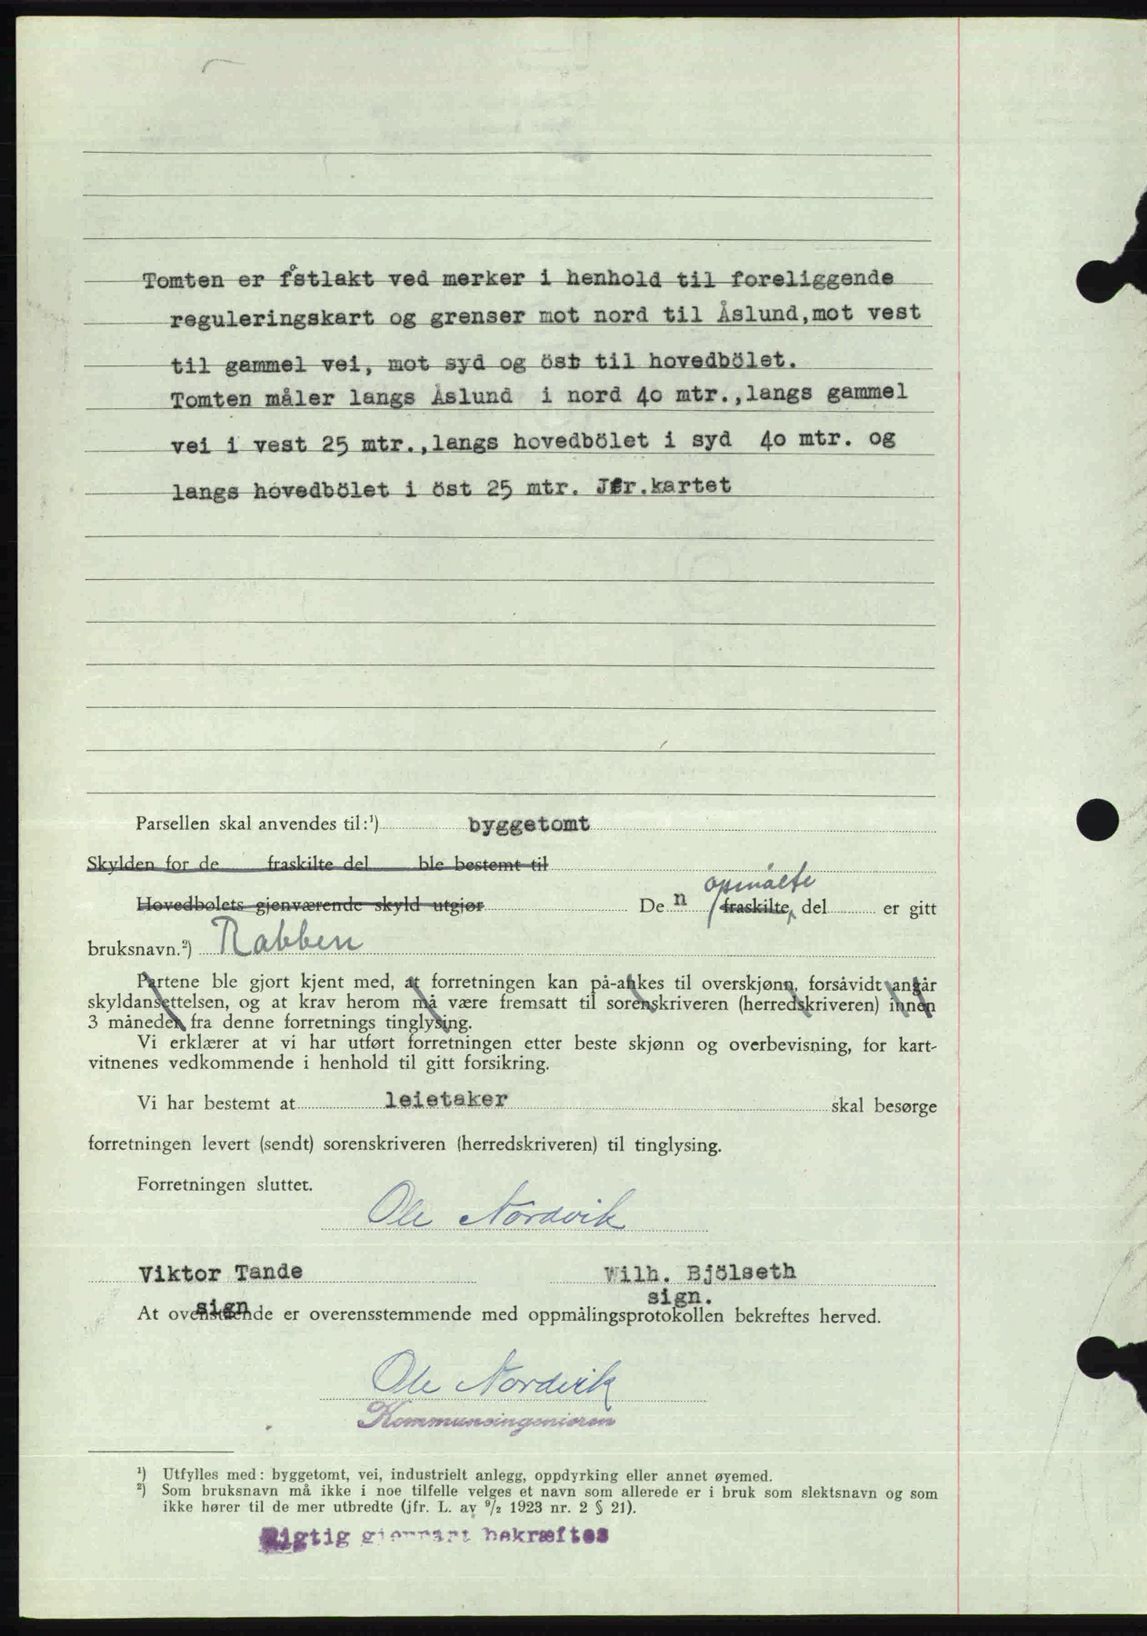 Tomten er fåstlakt ved merker i henhold til foreliggende
reguleringskart og grenser mot nord til Åslund,mot vest
til gammel vei, mot syd og öst til hovedbölet.
Tomten måler langs Åslund i nord 40 mtr.,langs gammel
vei i vest 25 mtr.,langs hovedbölet i syd 40 mtr. og
langs hovedbölet i öst 25 mtr. Jfr.kartet
Parsellen skal anvendes til:¹) byggetomt
Skylden for de fraskilte del ble bestemt til
opmålte
Hovedbølets gjenværende skyld utgjør De n fraskilte del er gitt
bruksnavn.²) Rabben
Partene ble gjort kjent med, at forretningen kan på-ankes til overskjønn, forsåvidt angår
skyldansettelsen, og at krav herom må være fremsatt til sorenskriveren (herredskriveren) innen
3 måneder fra denne forretnings tinglysing.
Vi erklærer at vi har utført forretningen etter beste skjønn og overbevisning, for kart-
vitnenes vedkommende i henhold til gitt forsikring.
Vi har bestemt at leietaker skal besørge
forretningen levert (sendt) sorenskriveren (herredskriveren) til tinglysing.
Forretningen sluttet.
Ole Nordvik
Viktor Tande Wilh. Bjölseth
sign sign.
At ovenstående er overensstemmende med oppmålingsprotokollen bekreftes herved.
Ole Nordvik
Kommuneingeniøren
¹) Utfylles med: byggetomt, vei, industrielt anlegg, oppdyrking eller annet øyemed.
²) Som bruksnavn må ikke i noe tilfelle velges et navn som allerede er i bruk som slektsnavn og som
ikke hører til de mer utbredte (jfr. L. av ⁹/₂ 1923 nr. 2 § 21).
Rigtig gjenpart bekræftes